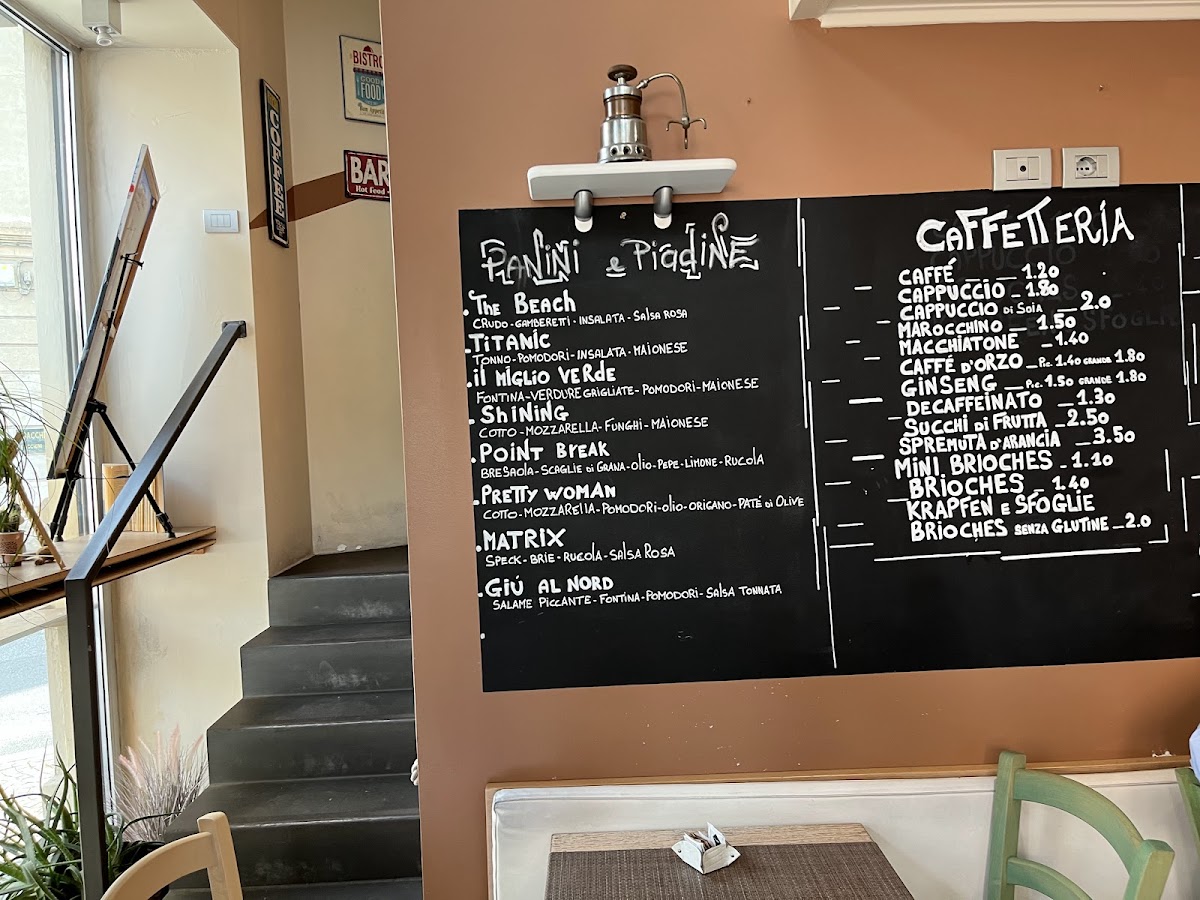 BISTRO
GOOD
FOOD
Bon Appetit
COFFEE
BAR
Hot Food
PANINI & PIADINE
THE BEACH
CRUDO-GAMBERETTI-INSALATA-SALSA ROSA
TITANIC
TONNO-POMODORI-INSALATA-MAIONESE
IL MIGLIO VERDE
FONTINA-VERDURE GRIGLIATE-POMODORI-MAIONESE
SHINING
COTTO-MOZZARELLA-FUNGHI-MAIONESE
POINT BREAK
BRESAOLA-SCAGLIE DI GRANA-OLIO-PEPE-LIMONE-RUCOLA
PRETTY WOMAN
COTTO-MOZZARELLA-POMODORI-OLIO-ORIGANO-PATÉ DI OLIVE
MATRIX
SPECK-BRIE-RUCOLA-SALSA ROSA
GIÚ AL NORD
SALAME PICCANTE-FONTINA-POMODORI-SALSA TONNATA
CAFFETTERIA
CAFFÉ ____ 1.20
CAPPUCCIO _ 1.80
CAPPUCCIO DI SOIA __ 2.0
MAROCCHINO _ 1.50
MACCHIATONE _ 1.40
CAFFÉ D'ORZO _ P.C. 1.40 GRANDE 1.80
GINSENG __ P.C. 1.50 GRANDE 1.80
DECAFFEINATO _ 1.30
SUCCHI DI FRUTTA _ 2.50
SPREMUTA D'ARANCIA _ 3.50
MINI BRIOCHES _ 1.10
BRIOCHES _ 1.40
KRAPFEN E SFOGLIE
BRIOCHES SENZA GLUTINE _ 2.0